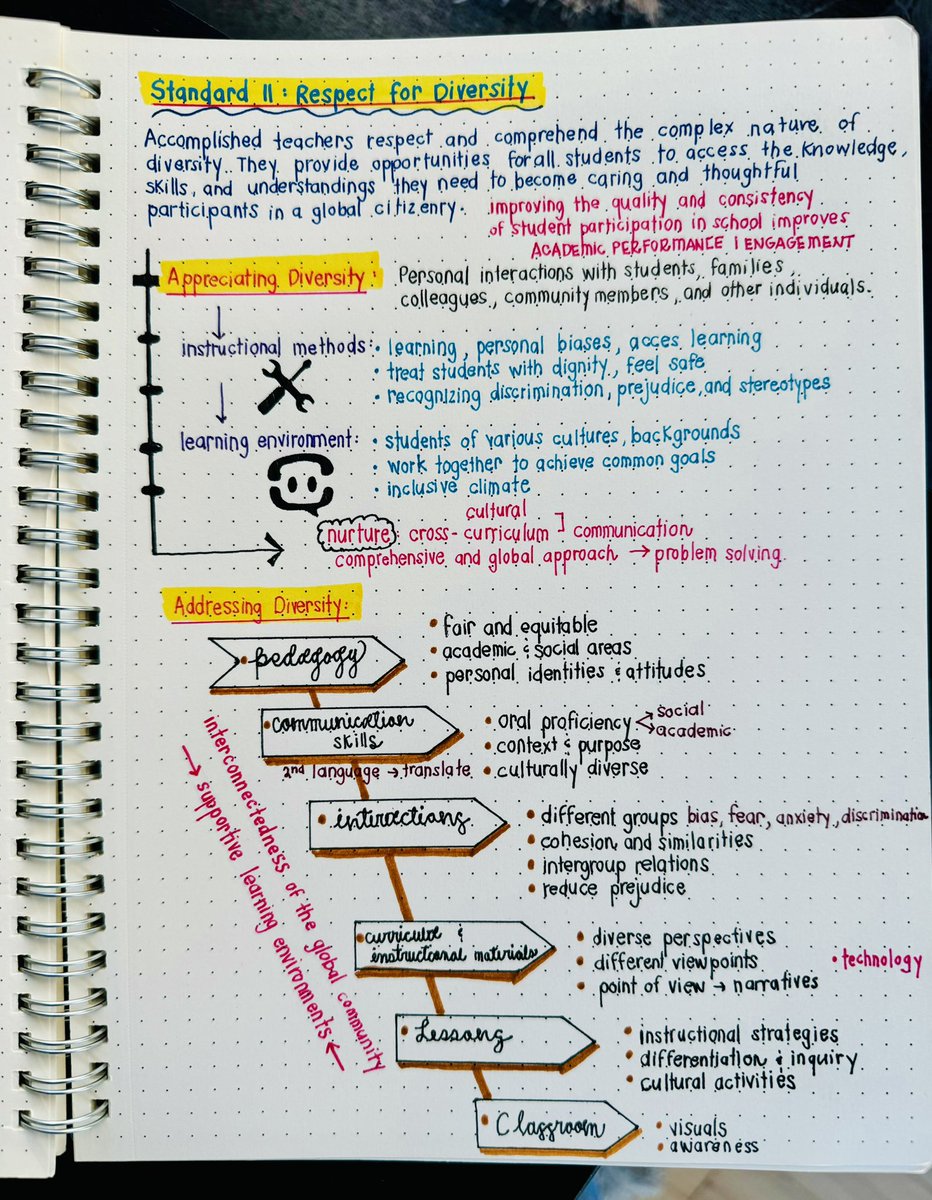 Standard II: Respect for Diversity
Accomplished teachers respect and comprehend the complex nature of
diversity. They provide opportunities for all students to access the knowledge,
skills, and understandings they need to become caring and thoughtful
participants in a global citizenry.
improving the quality and consistency
of student participation in school improves
ACADEMIC PERFORMANCE | ENGAGEMENT
Appreciating Diversity: Personal interactions with students, families
colleagues, community members, and other individuals.
↓
instructional methods: • learning, personal biases, acces learning
• treat students with dignity, feel safe
• recognizing discrimination, prejudice, and stereotypes
↓
learning environment: • students of various cultures, backgrounds
• work together to achieve common goals
• inclusive climate
cultural
nurture: cross-curriculum ] communication
comprehensive and global approach → problem solving
Addressing Diversity:
• pedagogy
• fair and equitable
• academic & social areas
• personal identities & attitudes
• communication
skills
2nd language → translate
• oral proficiency < social
academic
• context & purpose
• culturally diverse
• interactions
• different groups bias, fear, anxiety, discrimination
• cohesion and similarities
• intergroup relations
• reduce prejudice
• curricula &
instructional materials
• diverse perspectives
• different viewpoints
• point of view → narratives
• technology
• Lessons
• instructional strategies
• differentiation & inquiry
• cultural activities
• Classroom
• visuals
• awareness
interconnectedness of the global community
→ supportive learning environments ←